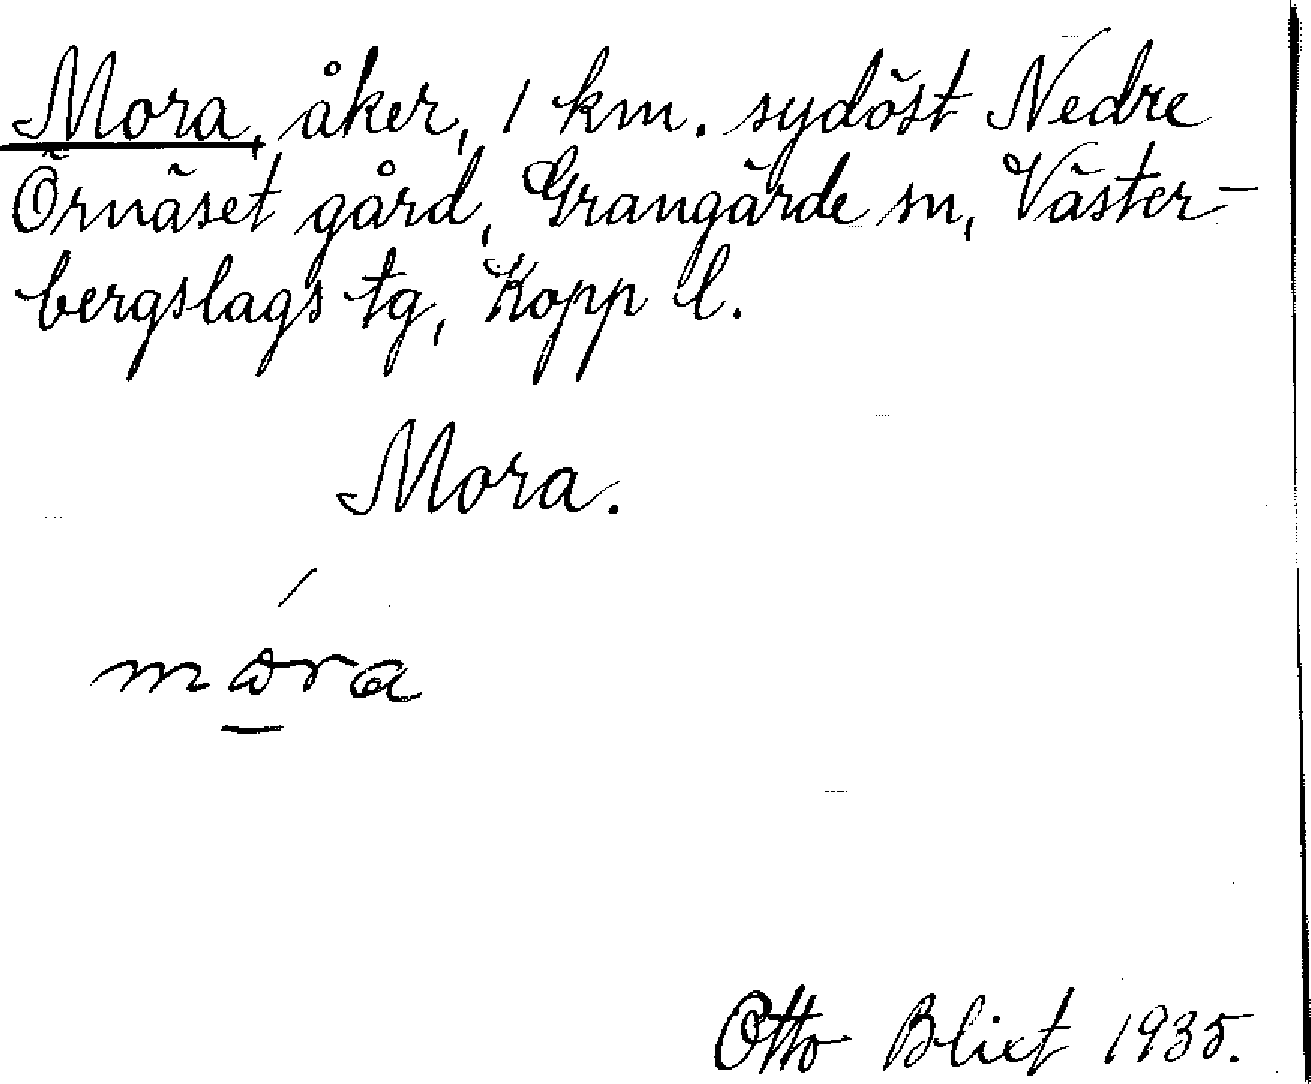 Mora, åker, 1 km. sydöst Nedre
Örnäset gård, Grangärde sn, Väster-
bergslags tg, Kopp l.
Mora.
mòra
Otto Blixt 1935.